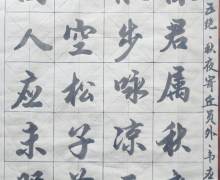 君属秋
步咏凉
空松子
人应未眠
五绝·秋夜寄丘员外·韦应